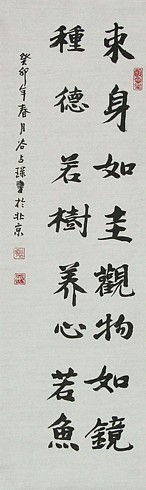 束身如圭觀物如鏡
種德若樹养心若魚
癸卯年春月谷占琭書於北京